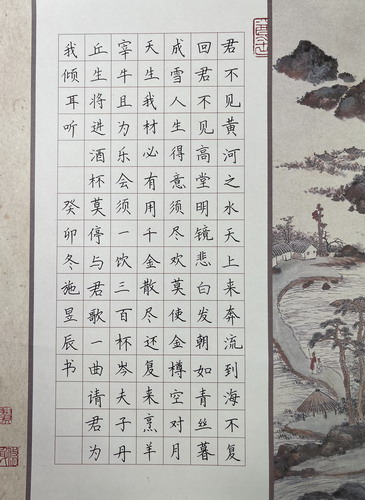 君不见黄河之水天上来奔流到海不复
回君不见高堂明镜悲白发朝如青丝暮
成雪人生得意须尽欢莫使金樽空对月
天生我材必有用千金散尽还复来烹羊
宰牛且为乐会须一饮三百杯岑夫子丹
丘生将进酒杯莫停与君歌一曲请君为
我倾耳听 癸卯冬施昱辰书